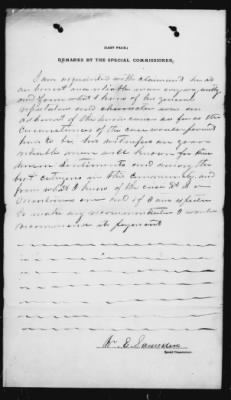 (LAST PAGE.)
REMARKS BY THE SPECIAL COMMISSIONER.
I am acquainted with claimant he is
an honest and reliable man
and from what I know of his general
reputation and character was an
adherent of the Union cause as far as the
circumstances of the case would permit
him to be. his witnesses are good
reliable men well known for their
Union sentiments and among the
best citizens in this community and
from what I know of the case it is a
meritorious one and if I am expected
to make any recommendation I would
recommend its payment
Wm. E.
Special Commissioner.